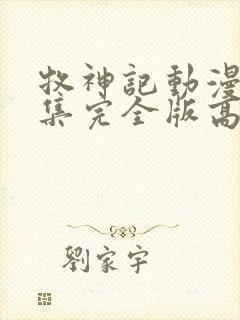 牧神記動漫
集完全版高
劉家宇